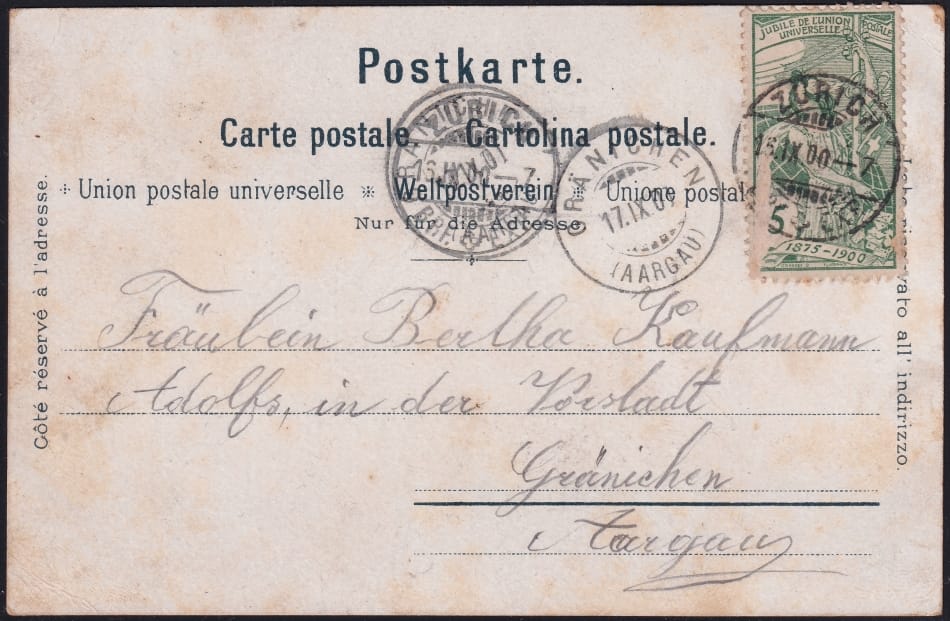 JUBILÉ DE L'UNION
UNIVERSELLE POSTALE
5
1875-1900
ZÜRICH
15.IX.00-7
Postkarte.
Carte postale. Cartolina postale.
Union postale universelle * Weltpostverein * Unione postale
Nur für die Adresse.
BRF.
GRÄNICHEN
17.IX.0
(AARGAU)
Côté réservé à l'adresse.
all' indirizzo.
Fräulein Bertha Kaufmann
Adolfs, in der Vorstadt
Gränichen
Aargau